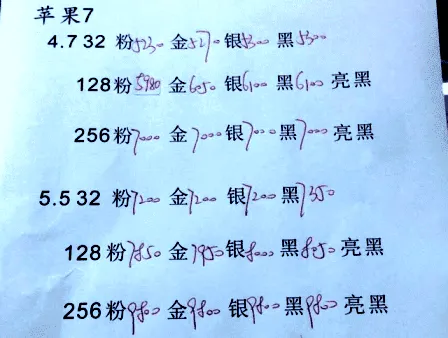 苹果7
4.7 32 粉5230 金5270 银5300 黑5300
128粉5980 金6050 银6100 黑6100 亮黑
256粉7000 金7000 银7000 黑7000 亮黑
5.5 32 粉7200 金7200 银7200 黑7350
128 粉7850 金7950 银8000 黑8050 亮黑
256 粉9800 金9800 银9800 黑9800 亮黑